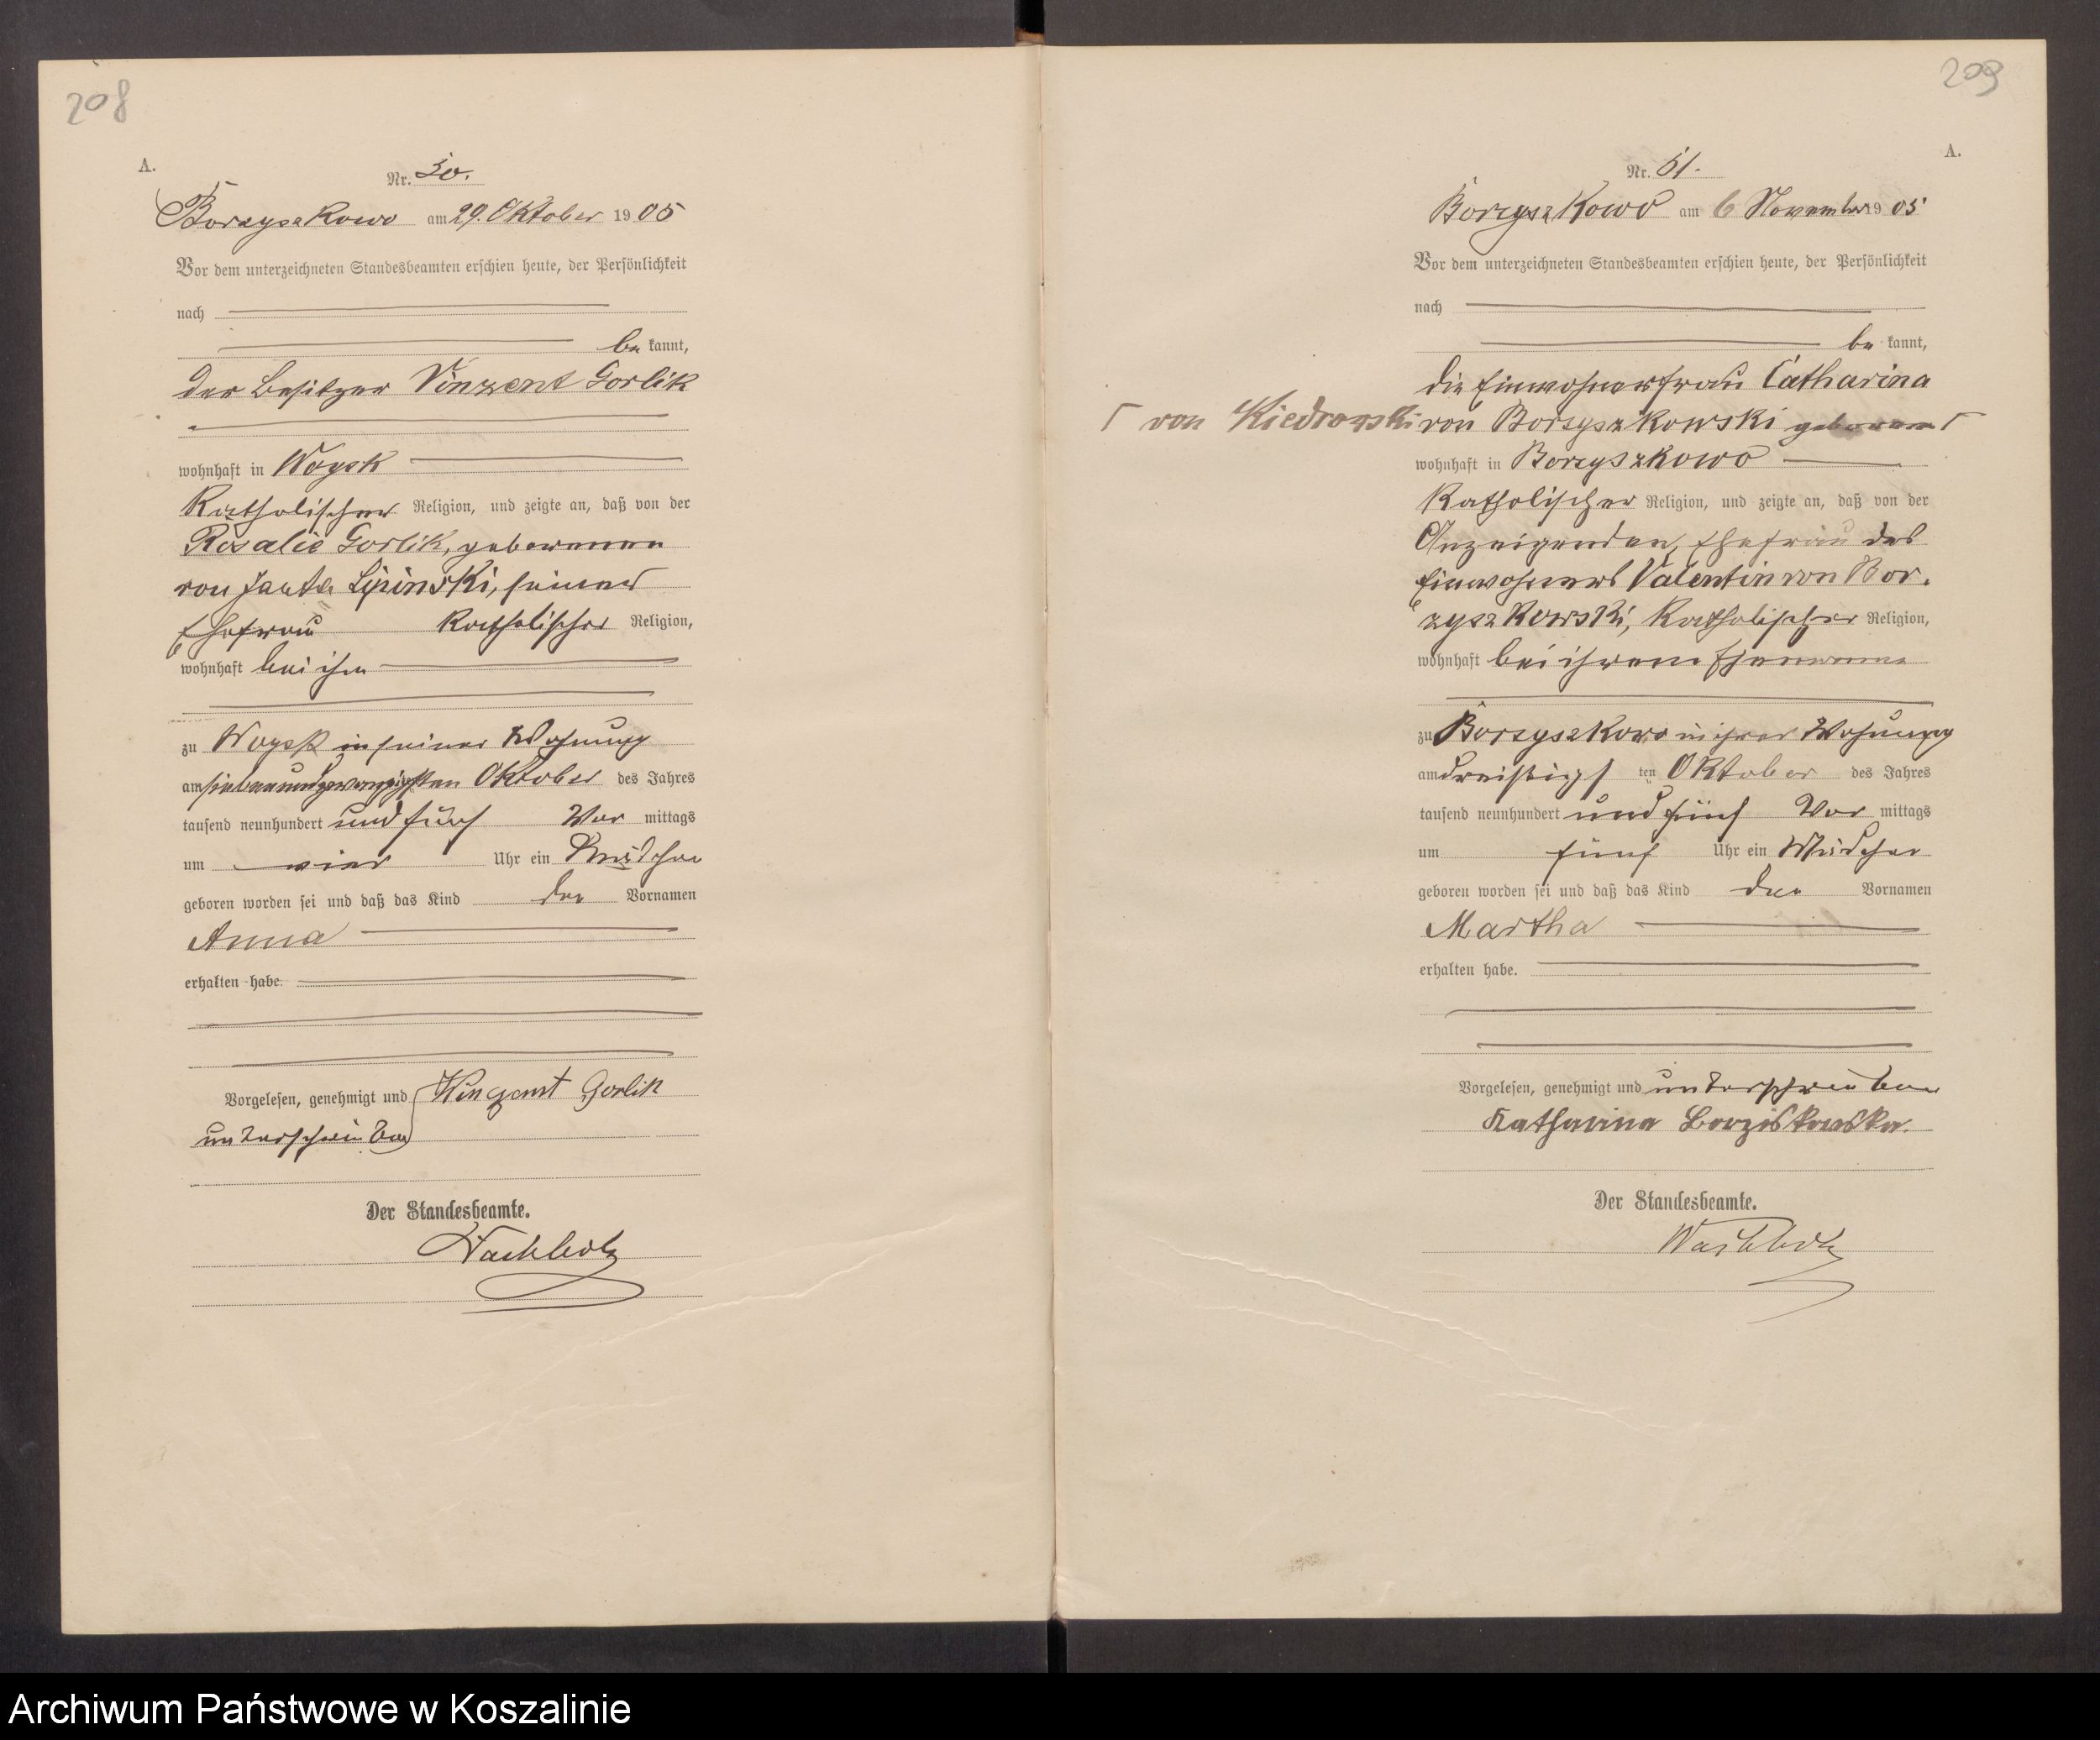 208
A.
Nr. 50.
Borzyszkowo am 29. Oktober 1905
Vor dem unterzeichneten Standesbeamten erschien heute, der Persönlichkeit
nach
be kannt,
der Besitzer Vinzent Gorlik
wohnhaft in Woysk
katholischer Religion, und zeigte an, daß von der
Rosalie Gorlik, geborenen
von Janta Lipinski, seiner
Ehefrau katholischer Religion,
wohnhaft bei ihm
zu Woysk in seiner Wohnung
am siebenundzwanzigsten Oktober des Jahres
tausend neunhundert und fünf Vor mittags
um vier Uhr ein Mädchen
geboren worden sei und daß das Kind den Vornamen
Anna
erhalten habe.
Vorgelesen, genehmigt und Winzent Gorlik
unterschrieben
Der Standesbeamte.
Wachholz
209
A.
Nr. 51.
Borzyszkowo am 6 November 1905
Vor dem unterzeichneten Standesbeamten erschien heute, der Persönlichkeit
nach
be kannt,
die Einwohnerfrau Catharina
von Borzyszkowski geborene Γ
Γ von Kiedrowski
wohnhaft in Borzyszkowo
katholischer Religion, und zeigte an, daß von der
Anzeigenden, Ehefrau des
Einwohners Valentin von Bor-
zyszkowski, katholischer Religion,
wohnhaft bei ihrem Ehemanne
zu Borzyszkowo in ihrer Wohnung
am dreißigsten Oktober des Jahres
tausend neunhundert und fünf Vor mittags
um fünf Uhr ein Mädchen
geboren worden sei und daß das Kind den Vornamen
Martha
erhalten habe.
Vorgelesen, genehmigt und unterschrieben
Katharina Borziskowska.
Der Standesbeamte.
Wachholz
Archiwum Państwowe w Koszalinie